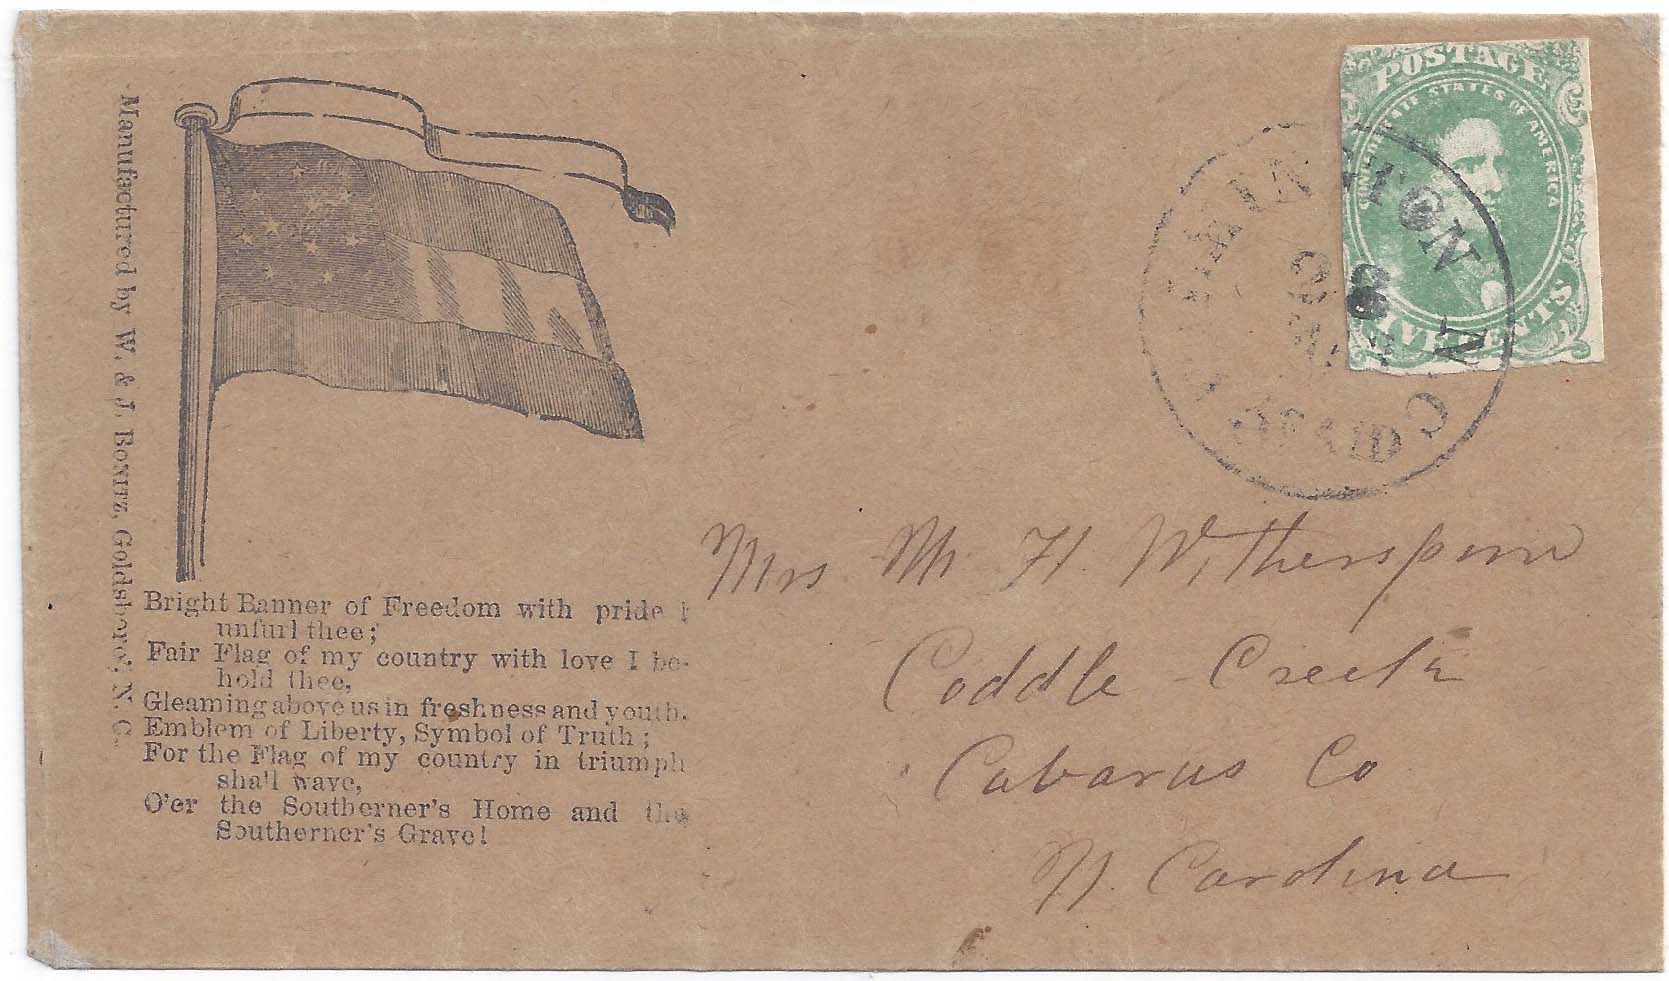 Manufactured by W. & J. Bonitz, Goldsboro', N. C.
Bright Banner of Freedom with pride I
unfurl thee;
Fair Flag of my country with love I be-
hold thee,
Gleaming above us in freshness and youth.
Emblem of Liberty, Symbol of Truth;
For the Flag of my country in triumph
shall wave,
O'er the Southerner's Home and the
Southerner's Grave!
POSTAGE
CONFEDERATE STATES OF AMERICA
FIVE CENTS
N.C.
PAID
Mrs M. H. Witherspoon
Coddle Creek
Cabarus Co
N. Carolina